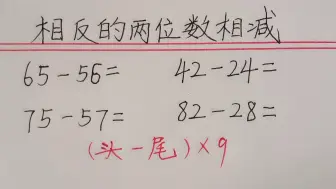 相反的两位数相减
65-56= 42-24=
75-57= 82-28=
(头-尾)×9